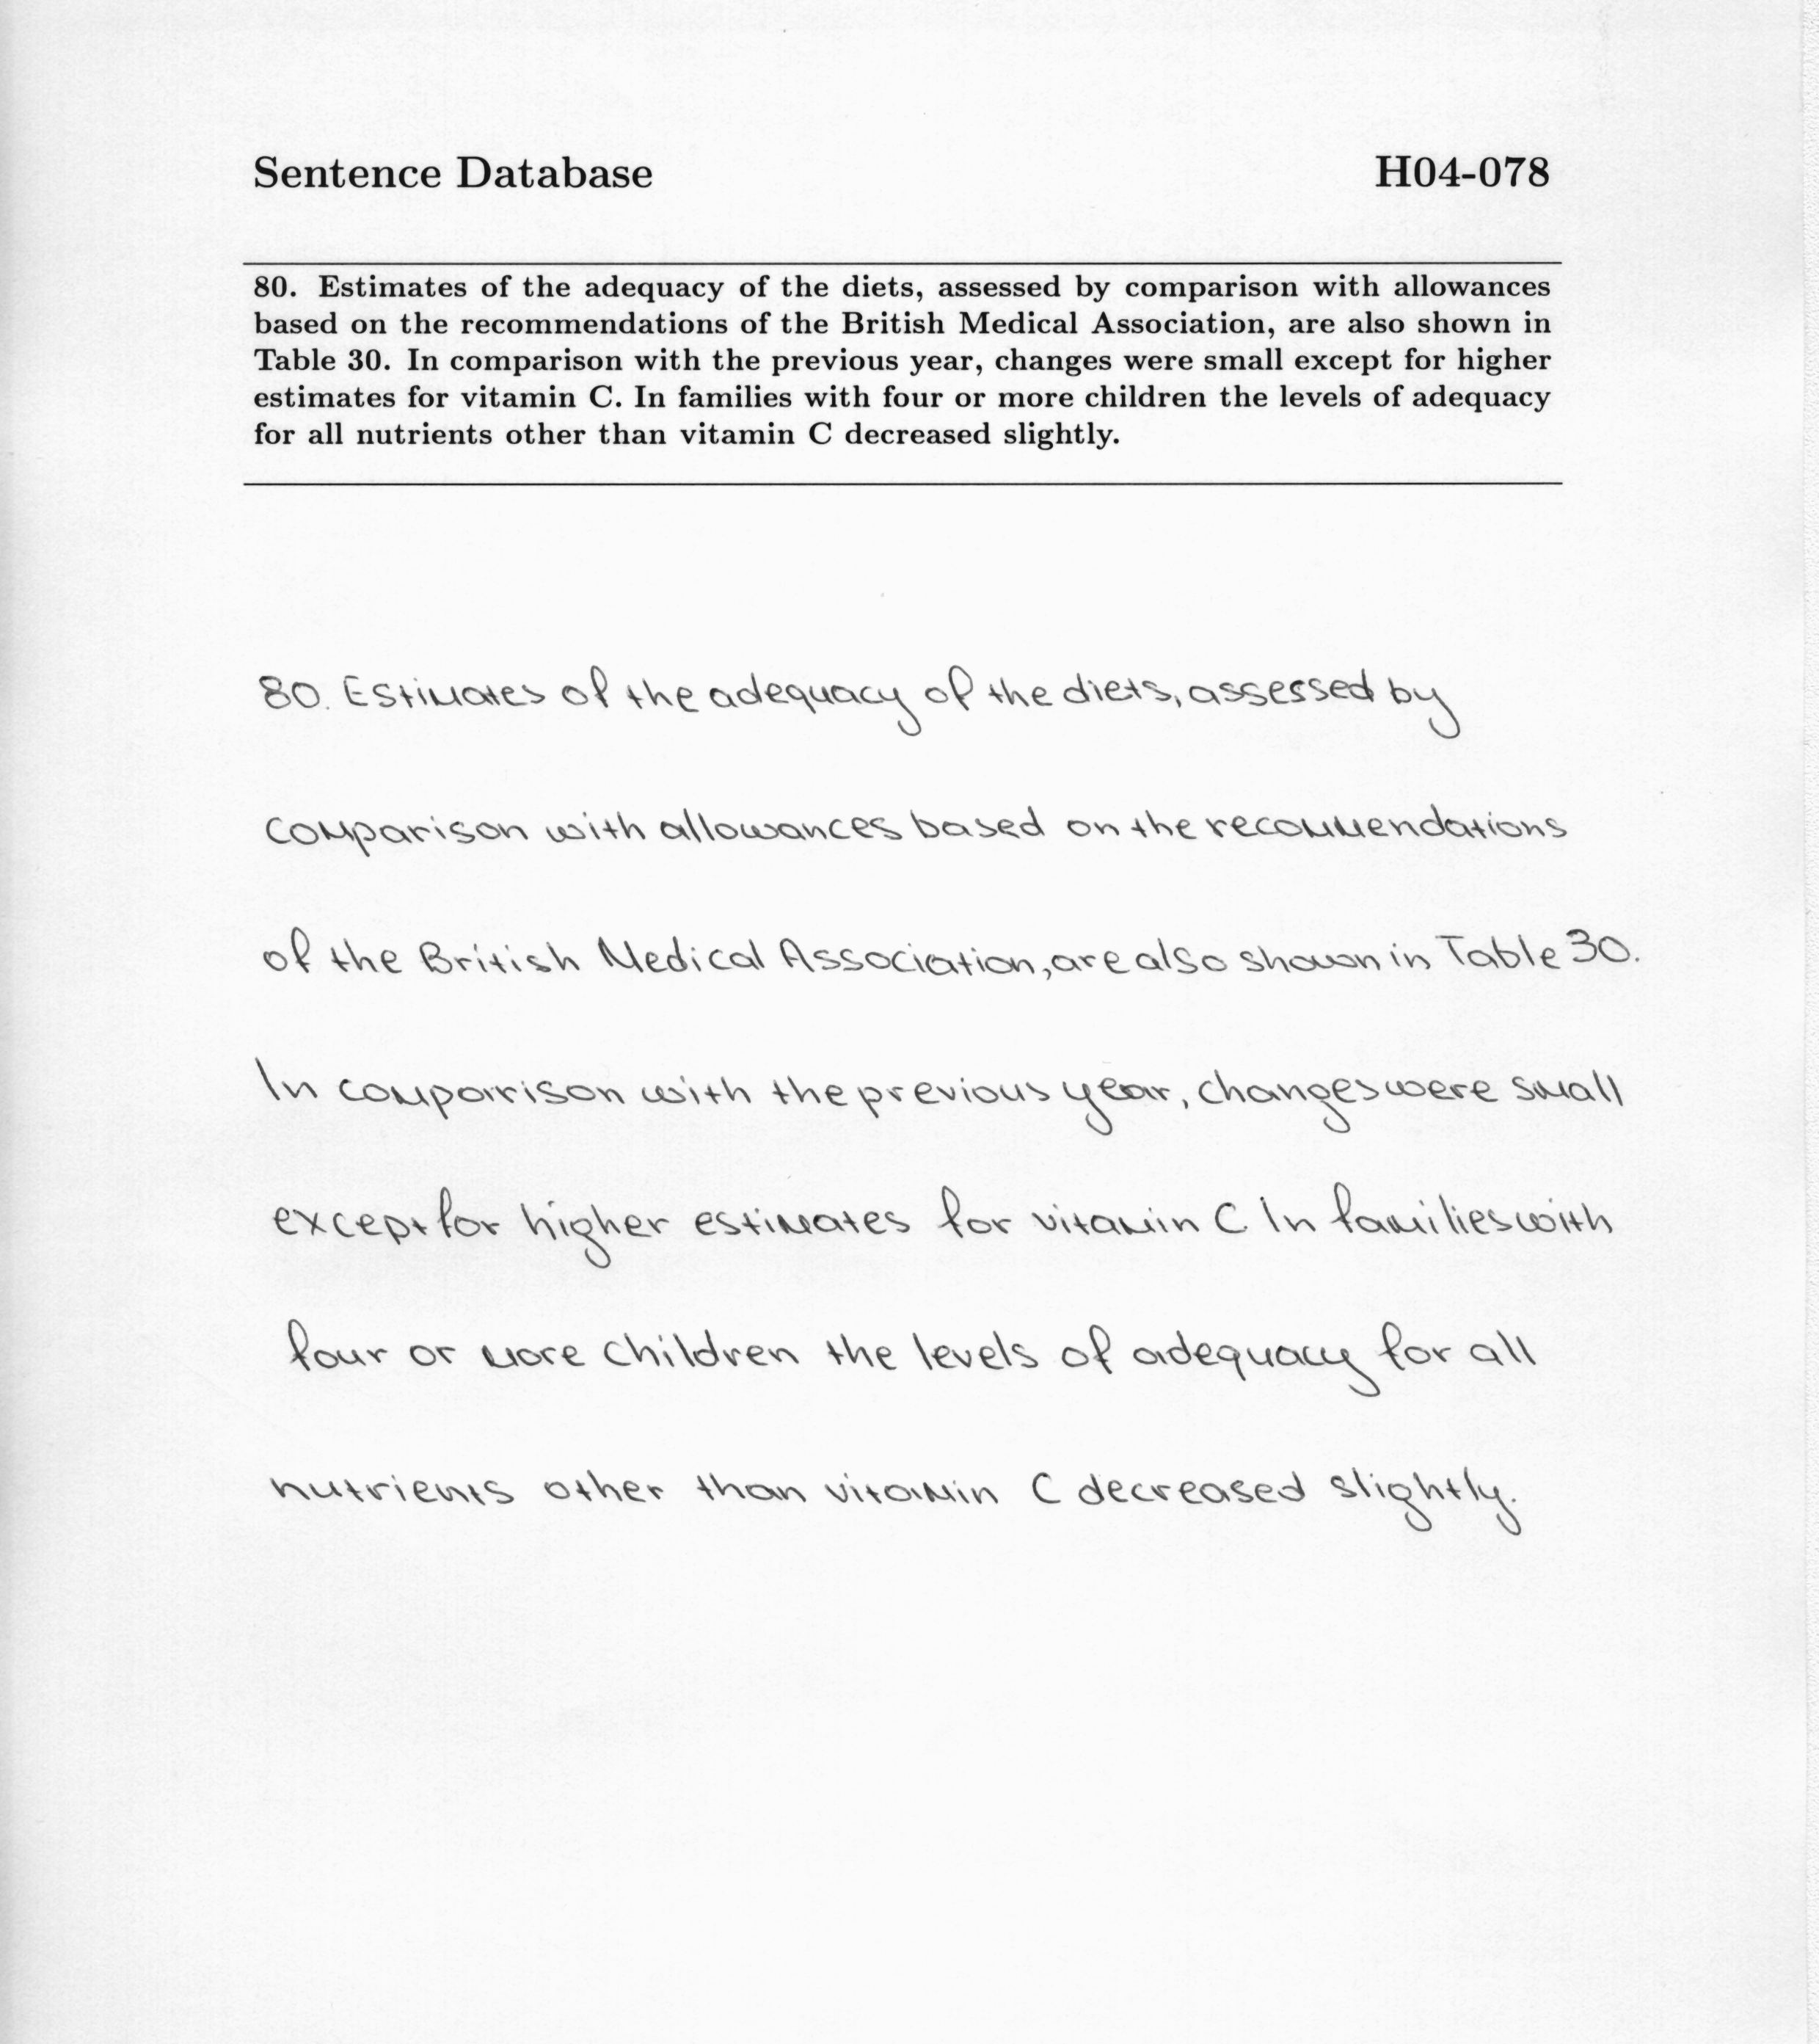 Sentence Database H04-078
80. Estimates of the adequacy of the diets, assessed by comparison with allowances
based on the recommendations of the British Medical Association, are also shown in
Table 30. In comparison with the previous year, changes were small except for higher
estimates for vitamin C. In families with four or more children the levels of adequacy
for all nutrients other than vitamin C decreased slightly.
80. Estimates of the adequacy of the diets, assessed by
comparison with allowances based on the recommendations
of the British Medical Association, are also shown in Table 30.
In comparison with the previous year, changes were small
except for higher estimates for vitamin C In families with
four or more children the levels of adequacy for all
nutrients other than vitamin C decreased slightly.